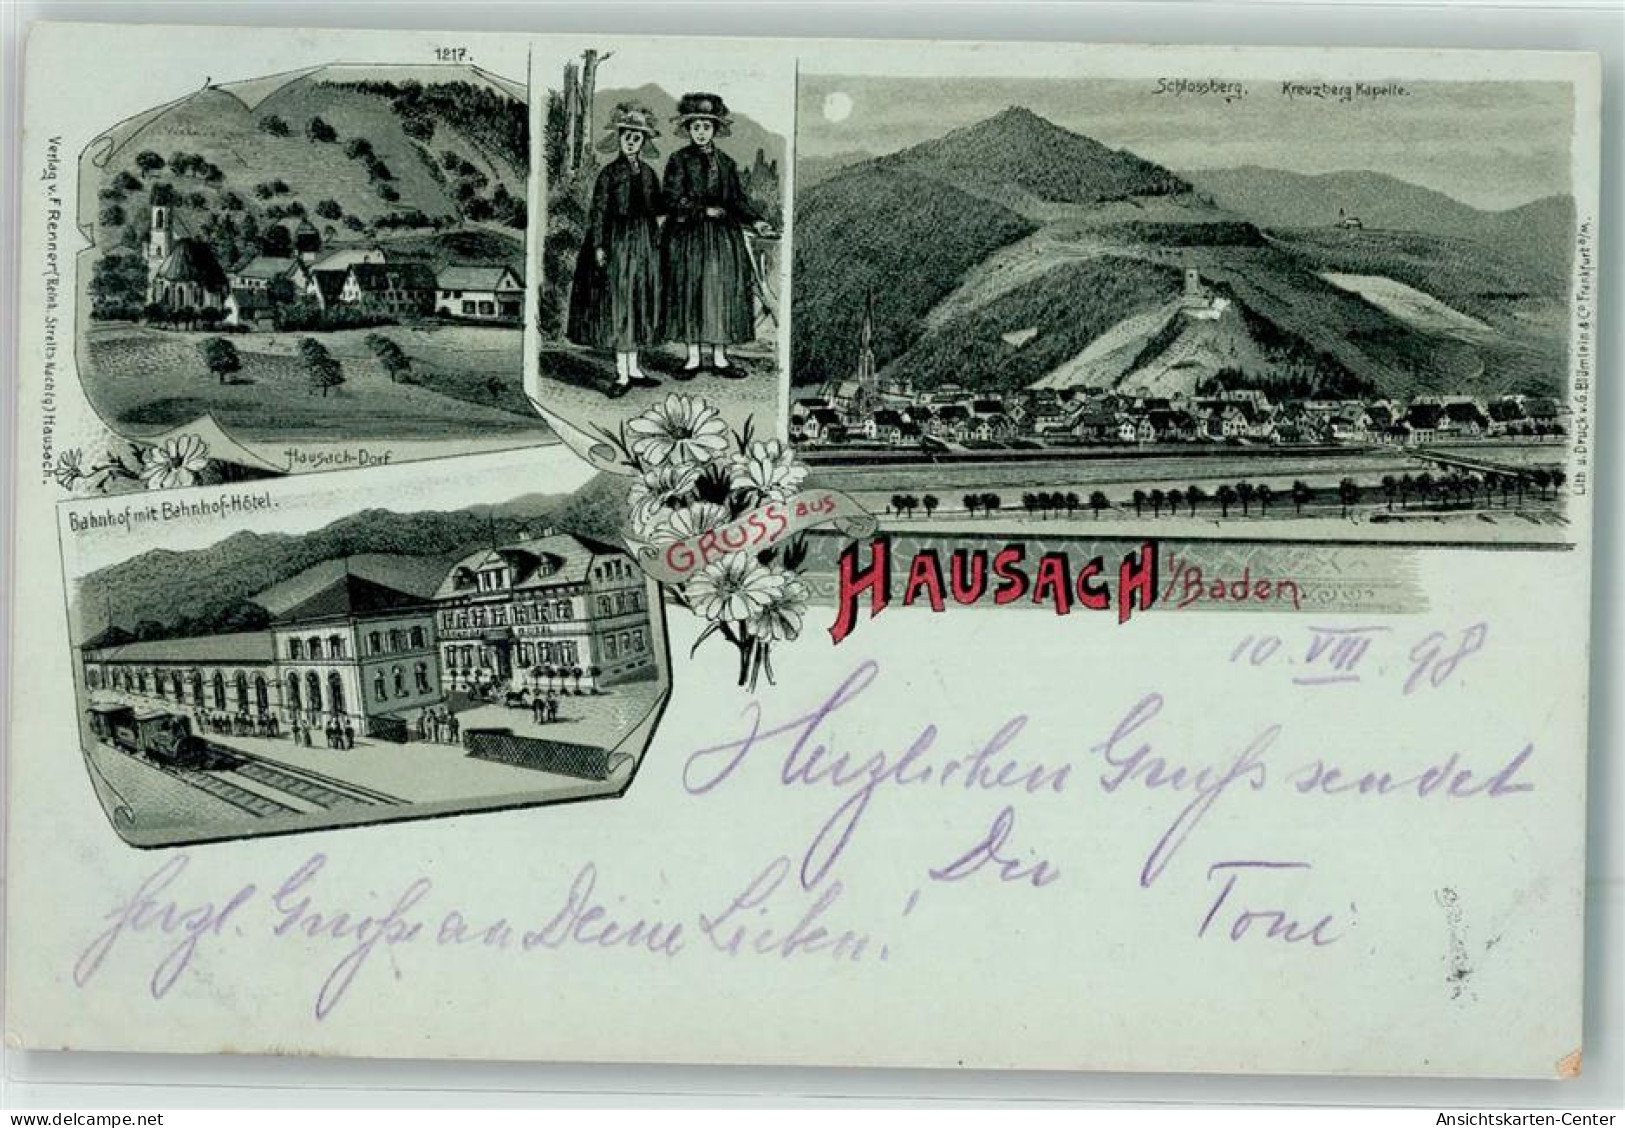 1217.
Schlossberg. Kreuzberg Kapelle.
Verlag v. F Renner (Reinh. Streits Nachfg) Hausach.
Lith u. Druck v. G. Blümlein & Co. Frankfurt a/M.
Hausach-Dorf
Bahnhof mit Bahnhof-Hôtel.
GRUSS aus
HAUSACH i/Baden.
10. VIII. 98.
Herzlichen Gruß sendet
Dir
Toni
Herzl. Grüße an Deine Lieben!
Ansichtskarten-Center
www.delcampe.net